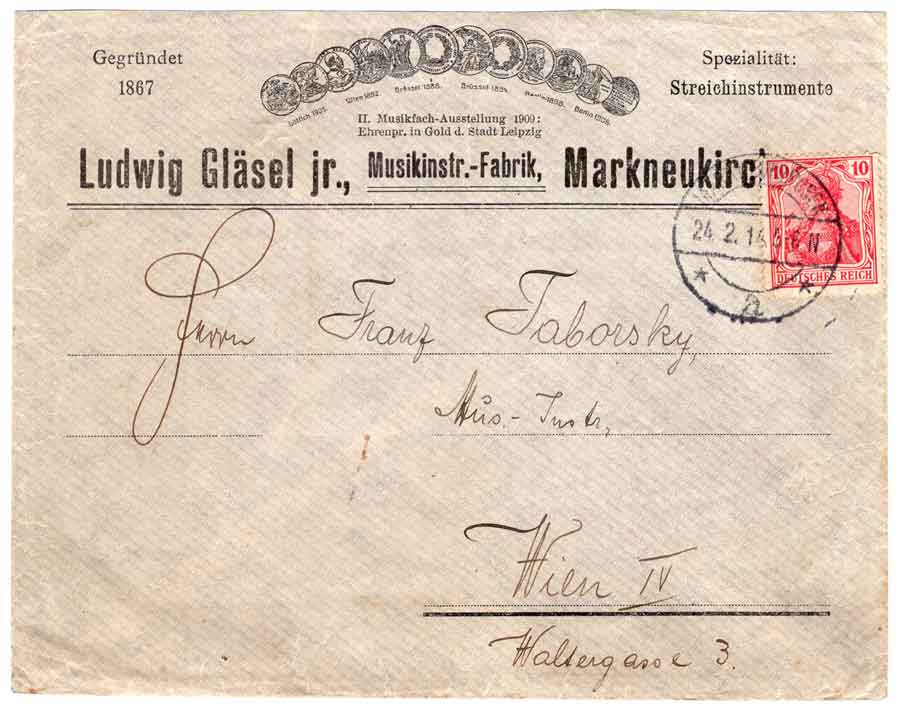 Gegründet
1867
Spezialität:
Streichinstrumente
Wien 1892.
Brüssel 1888.
Berlin 1898.
II. Musikfach-Ausstellung 1909:
Ehrenpr. in Gold d. Stadt Leipzig
Ludwig Gläsel jr., Musikinstr.-Fabrik, Markneukirch
10 10
DEUTSCHES REICH
24. 2. 14. N
a
Herrn Franz Taborsky,
Mus.-Instr,
Wien IV
Waltergasse 3.